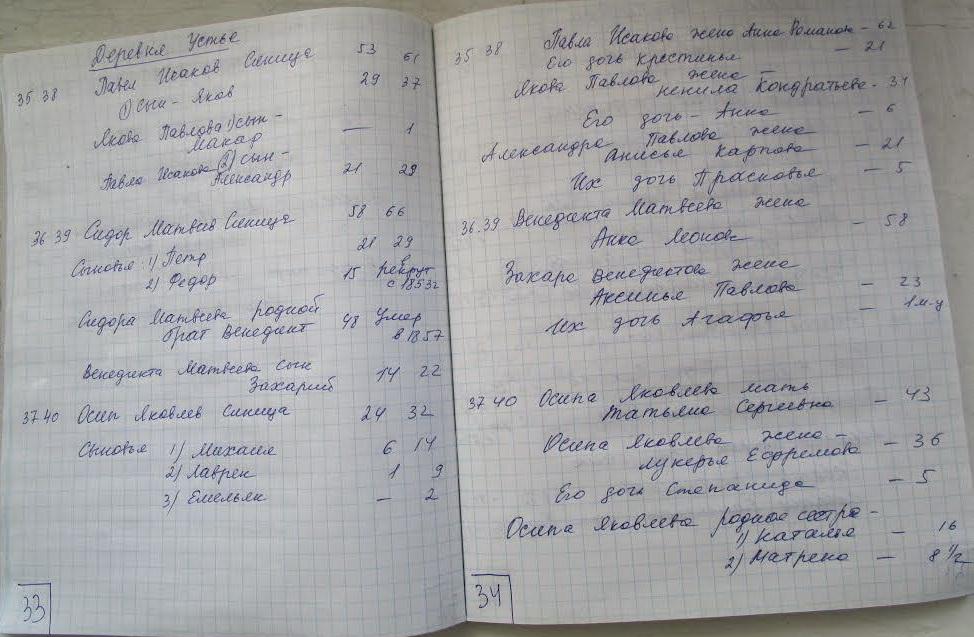 Деревня Устье
35 38 Павел Исаков Синица 53 61
1) сын - Яков 29 37
Якова Павлова 1) сын -
Макар — 1
Павла Исакова 2) сын -
Александр 21 29
36 39 Сидор Матвеев Синица 58 66
Сыновья 1) Петр 21 29
2) Федор 15 в рекрут
с 1853г
Сидора Матвеева родной
брат Венедикт 48 умер
в 1857
Венедикта Матвеева сын
Захарий 14 22
37 40 Осип Яковлев Синица 24 32
Сыновья 1) Михаил 6 14
2) Лаврен 1 9
3) Емельян — 2
33
35 38 Павла Исакова жена Анна Романова - 62
Его дочь Крестинья — 21
Якова Павлова жена —
Ненила Кондратьева - 31
Его дочь - Анна — 6
Александра Павлова жена
Анисья Карпова — 21
Их дочь Прасковья — 5
36.39 Венедикта Матвеева жена
Анна Леонова — 58
Захара Венедиктова жена
Аксинья Павлова — 23
Их дочь Агафья — 1 м-ц
37 40 Осипа Яковлева мать
Татьяна Сергеевна — 43
Осипа Яковлева жена —
Лукерья Ефремова — 36
Его дочь Степанида — 5
Осипа Яковлева родные сестры -
1) Наталья — 16
2) Матрена — 8 1/2
34